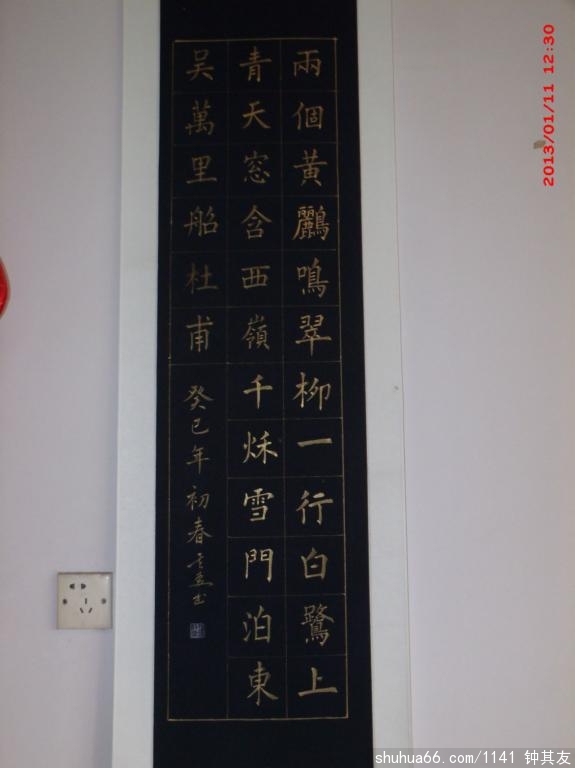 兩個黃鸝鳴翠柳一行白鷺上
青天窓含西嶺千秌雪門泊東
吴萬里船杜甫
癸巳年初春
2013/01/11 12:30
shuhua66.com/1141 钟其友